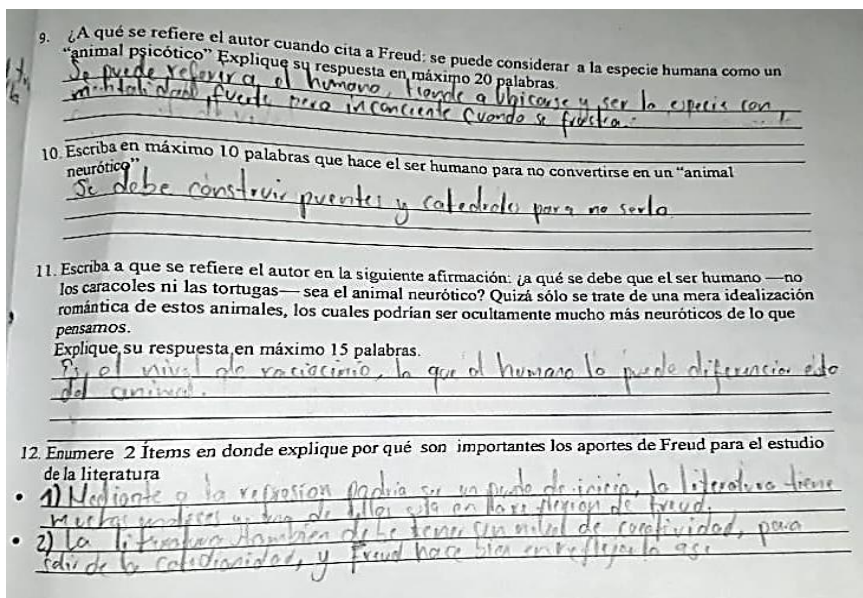 9. ¿A qué se refiere el autor cuando cita a Freud: se puede considerar a la especie humana como un
“animal psicótico” Explique su respuesta en máximo 20 palabras.
Se puede referir a el humano, tiende a ubicarse y ser la especie con
mentalidad fuerte pero inconciente cuando se frustra.
10. Escriba en máximo 10 palabras que hace el ser humano para no convertirse en un “animal
neurótico”
Se debe construir puentes y catedrales para no serlo
11. Escriba a que se refiere el autor en la siguiente afirmación: ¿a qué se debe que el ser humano —no
los caracoles ni las tortugas— sea el animal neurótico? Quizá sólo se trate de una mera idealización
romántica de estos animales, los cuales podrían ser ocultamente mucho más neuróticos de lo que
pensamos.
Explique su respuesta en máximo 15 palabras.
el nivel de raciocinio, lo que al humano lo puede diferenciar
del animal.
12. Enumere 2 Ítems en donde explique por qué son importantes los aportes de Freud para el estudio
de la literatura
1) Mediante a la represion podria ser un punto de inicio, la literatura tiene
muchas y una de ellas esta en la reflexion de freud.
2) La literatura tambien debe tener un nivel de creatividad, para
salir de la cotidianidad, y Freud hace bien en reflejarla asi